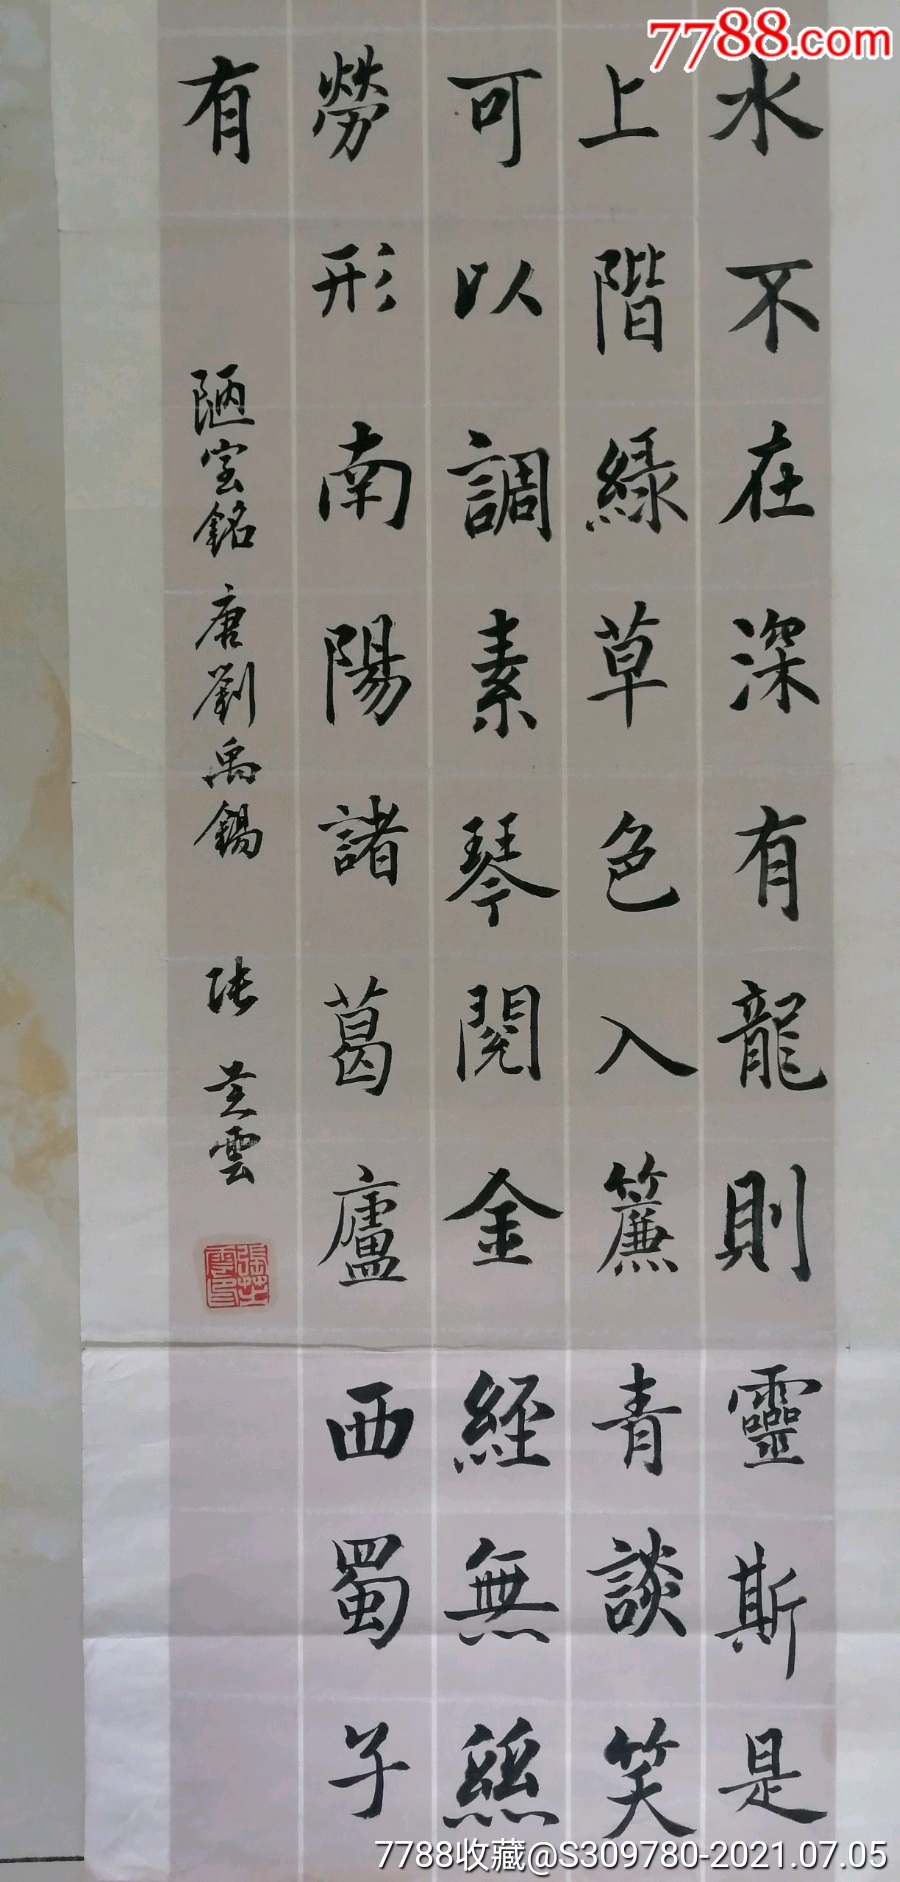 7788.com
水不在深有龍則靈斯是
上階綠草色入簾青談笑
可以調素琴閱金經無絲
勞形南陽諸葛廬西蜀子
有
陋室銘 唐劉禹錫 張芝雲
7788收藏@S309780-2021.07.05